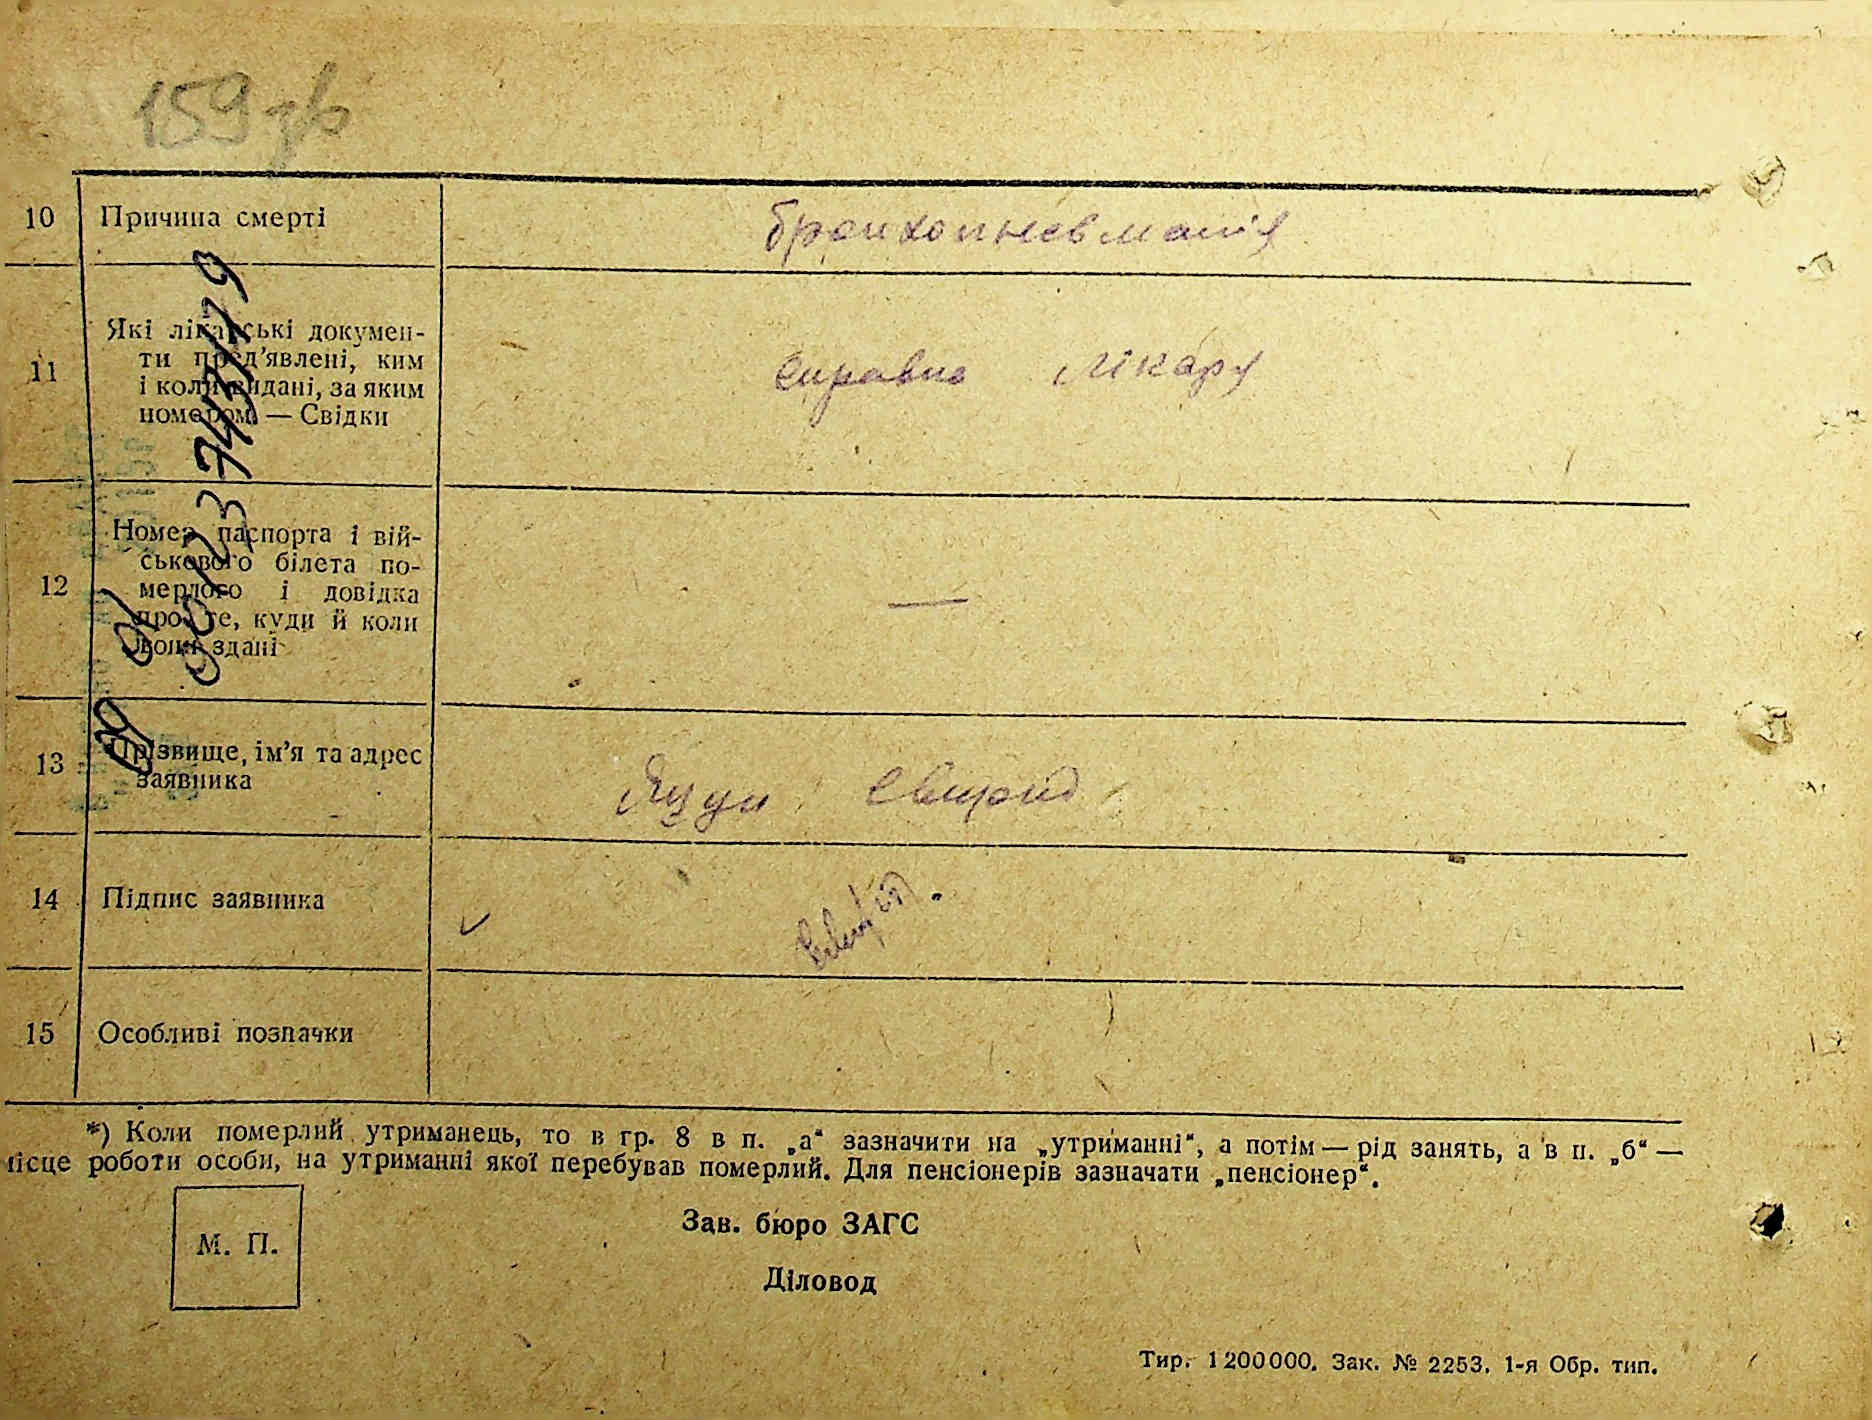 159 зв
10 Причина смерті бронхопневманія
11 Які лікарські докумен-
ти пред'явлені, ким
і коли видані, за яким
номером — Свідки
справка лікаря
12 Номер паспорта і вій-
ськового білета по-
мерлого і довідка
про те, куди й коли
вони здані
—
13 Прізвище, ім'я та адрес
заявника
14 Підпис заявника
15 Особливі позначки
*) Коли померлий утриманець, то в гр. 8 в п. „а“ зазначити на „утриманні“, а потім — рід занять, а в п. „б“ —
місце роботи особи, на утриманні якої перебував померлий. Для пенсіонерів зазначати „пенсіонер“.
М. П.
Зав. бюро ЗАГС
Діловод
Тир. 1200000. Зак. № 2253. 1-я Обр. тип.